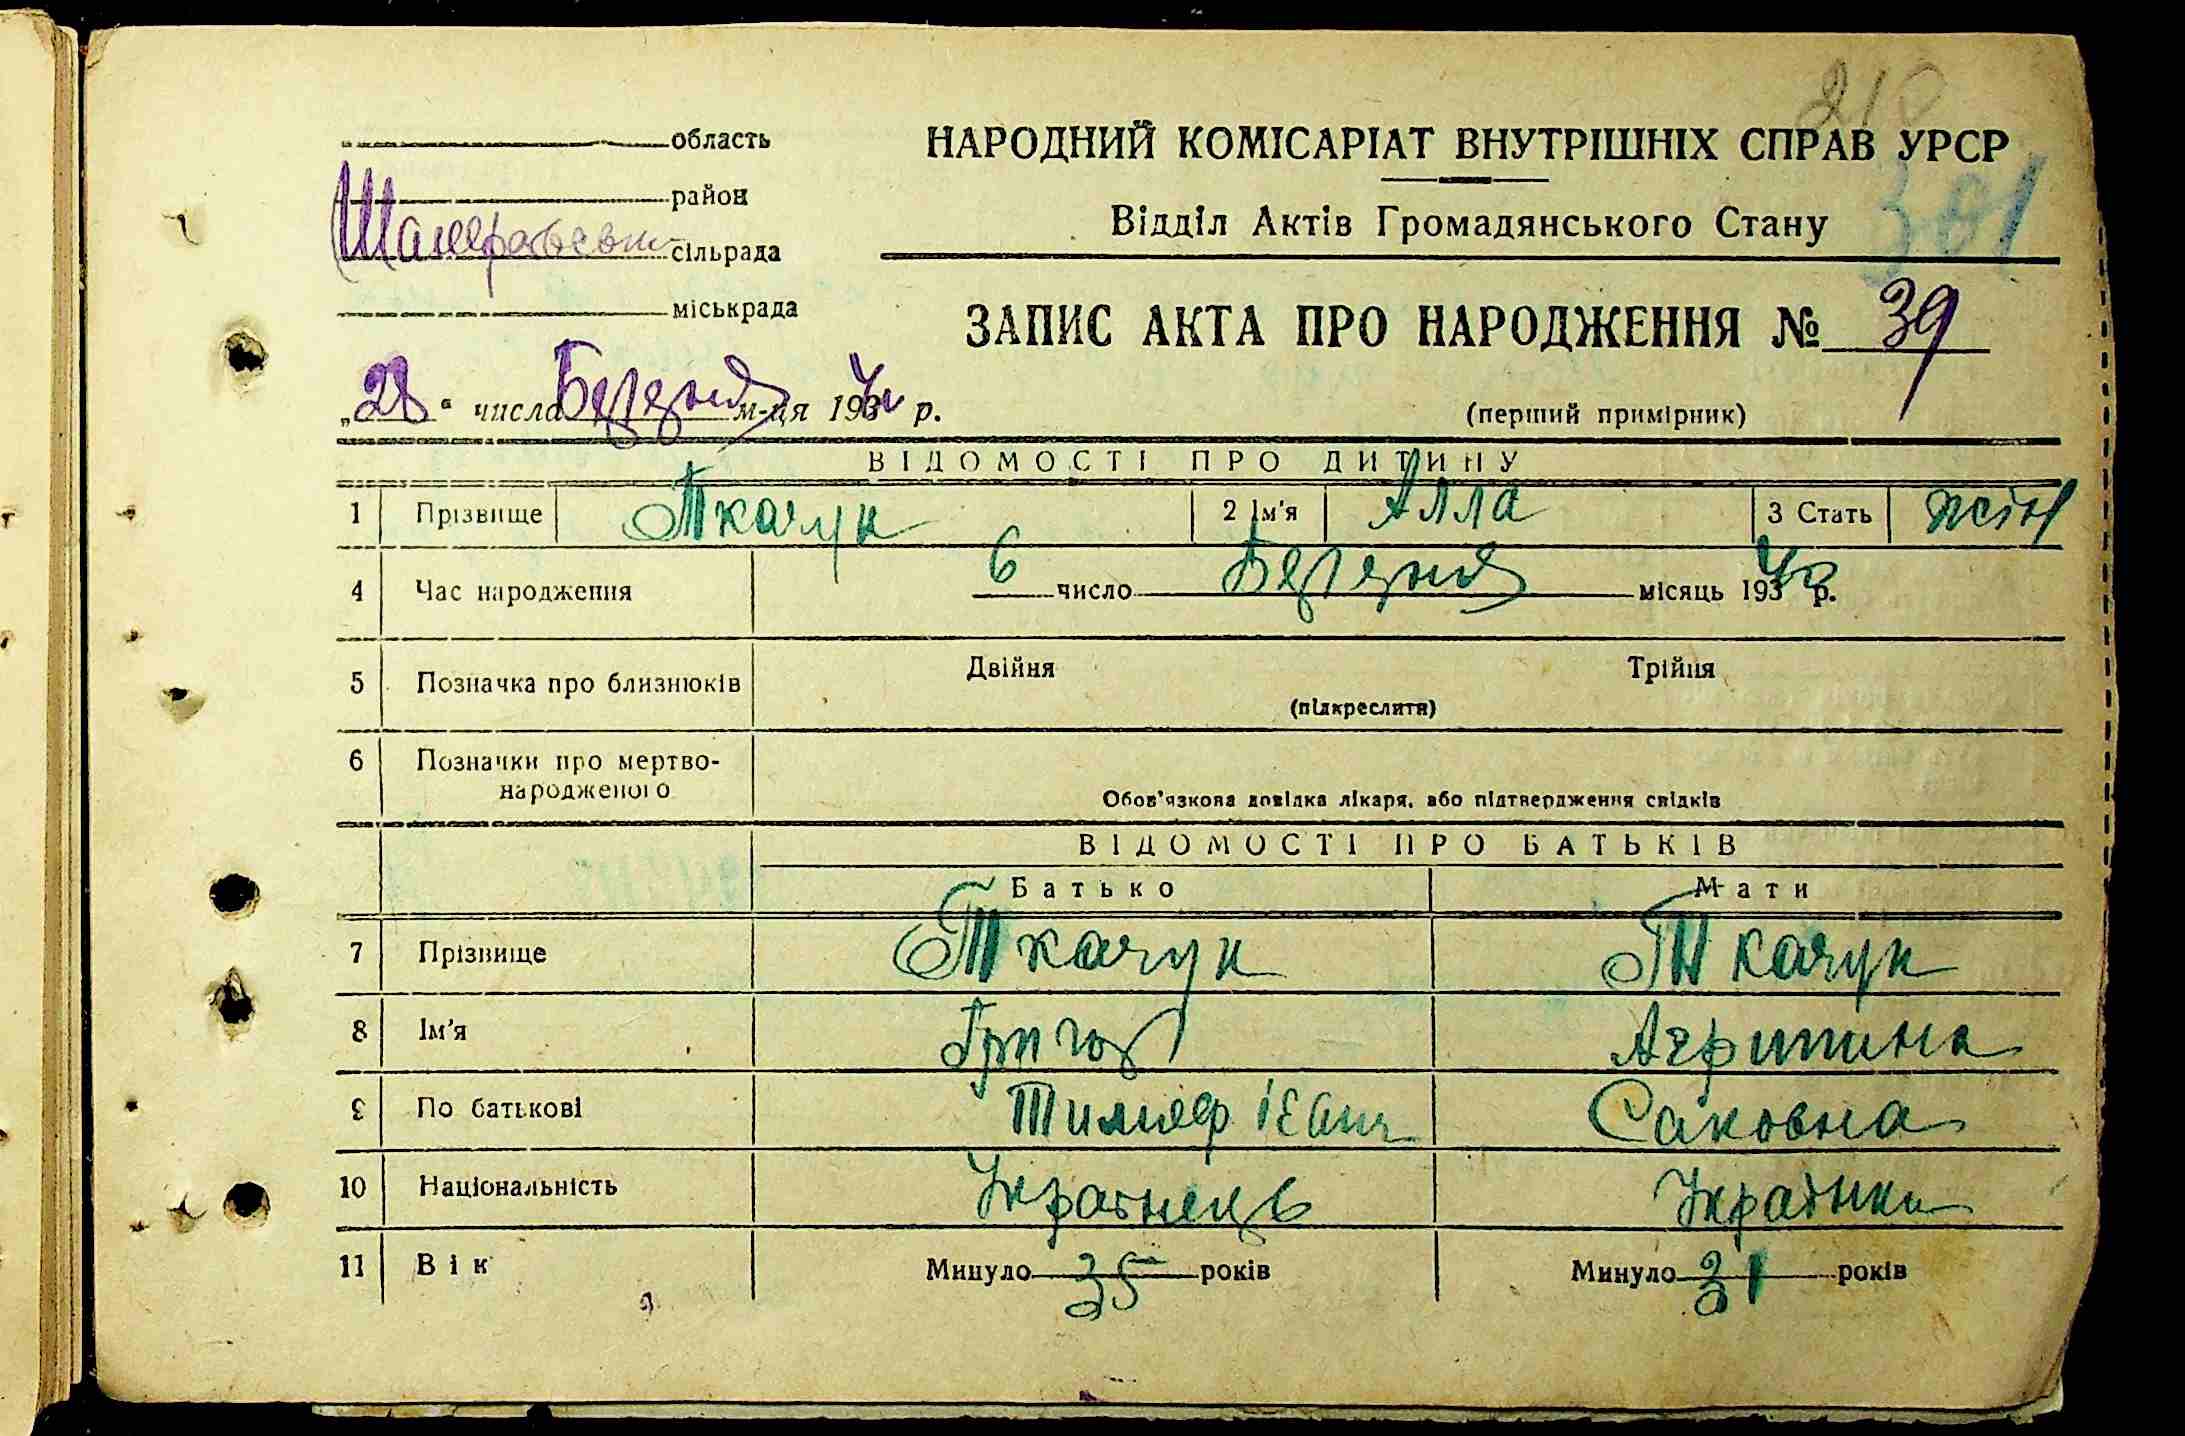 210
область
НАРОДНИЙ КОМІСАРІАТ ВНУТРІШНІХ СПРАВ УРСР
район
301
Відділ Актів Громадянського Стану
сільрада
міськрада
ЗАПИС АКТА ПРО НАРОДЖЕННЯ № 39
„28“ числа Березня м-ця 1940 р.
(перший примірник)
ВІДОМОСТІ ПРО ДИТИНУ
1 Прізвище Ткачук 2 Ім'я Алла 3 Стать жін
4 Час народження 6 число Березня місяць 1940 р.
5 Позначка про близнюків Двійня Трійня
(підкреслити)
6 Позначки про мертво-
народженого Обов'язкова довідка лікаря, або підтвердження свідків
ВІДОМОСТІ ПРО БАТЬКІВ
Батько Мати
7 Прізвище Ткачук Ткачук
8 Ім'я Григор Агрипина
9 По батькові Саковна
10 Національність Українець Українка
11 Вік Минуло 35 років Минуло 31 років